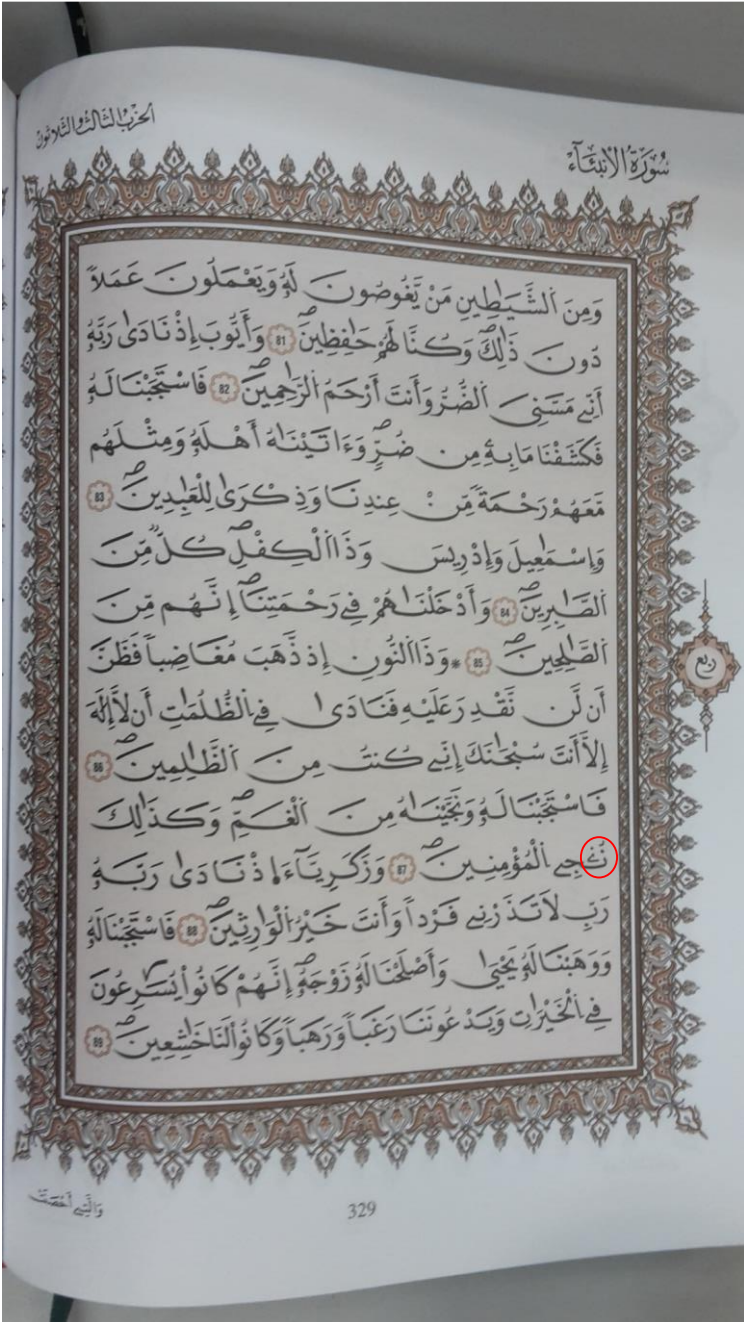 الحزب الثالث والثلاثون
سُورَةُ الْأَنْبِئَآءِ
وَمِنَ اَ۬لشَّيَٰطِينِ مَنْ يَّغُوصُونَ لَهُۥ وَيَعْمَلُونَ عَمَلاٗ
دُونَ ذَٰلِكَۖ وَكُنَّا لَهُمْ حَٰفِظِينَۖ 81 وَأَيُّوبَ إِذْ نَادَىٰ رَبَّهُۥٓ
أَنِّے مَسَّنِيَ اَ۬لضُّرُّ وَأَنتَ أَرْحَمُ اُ۬لرَّٰحِمِينَۖ 82 فَاسْتَجَبْنَا لَهُۥ
فَكَشَفْنَا مَا بِهِۦ مِن ضُرّٖۖ وَءَاتَيْنَٰهُ أَهْلَهُۥ وَمِثْلَهُم
مَّعَهُمْ رَحْمَةٗ مِّنْ عِندِنَا وَذِكْرَىٰ لِلْعَٰبِدِينَۖ 83
وَإِسْمَٰعِيلَ وَإِدْرِيسَ وَذَا اَ۬لْكِفْلِۖ كُلّٞ مِّنَ
اَ۬لصَّٰبِرِينَۖ 84 وَأَدْخَلْنَٰهُمْ فِے رَحْمَتِنَآۖ إِنَّهُم مِّنَ
اَ۬لصَّٰلِحِينَۖ 85 * وَذَا اَ۬لنُّونِ إِذ ذَّهَبَ مُغَٰضِباٗ فَظَنَّ
أَن لَّن نَّقْدِرَ عَلَيْهِ فَنَادَىٰ فِے اِ۬لظُّلُمَٰتِ أَن لَّآ إِلَٰهَ
إِلَّآ أَنتَ سُبْحَٰنَكَ إِنِّے كُنتُ مِنَ اَ۬لظَّٰلِمِينَۖ 86
فَاسْتَجَبْنَا لَهُۥ وَنَجَّيْنَٰهُ مِنَ اَ۬لْغَمِّۖ وَكَذَٰلِكَ
نُۨجِے اِ۬لْمُؤْمِنِينَۖ 87 وَزَكَرِيَّآءَ اِ۪ذْ نَادَىٰ رَبَّهُۥ
رَبِّ لَا تَذَرْنِے فَرْداٗ وَأَنتَ خَيْرُ اُ۬لْوَٰرِثِينَۖ 88 فَاسْتَجَبْنَا لَهُۥ
وَوَهَبْنَا لَهُۥ يَحْيَىٰ وَأَصْلَحْنَا لَهُۥ زَوْجَهُۥٓۖ إِنَّهُمْ كَانُواْ يُسَٰرِعُونَ
فِے اِ۬لْخَيْرَٰتِ وَيَدْعُونَنَا رَغَباٗ وَرَهَباٗ وَكَانُواْ لَنَا خَٰشِعِينَۖ 89
ربع
وَالتِے أَحْصَنَتْ
329